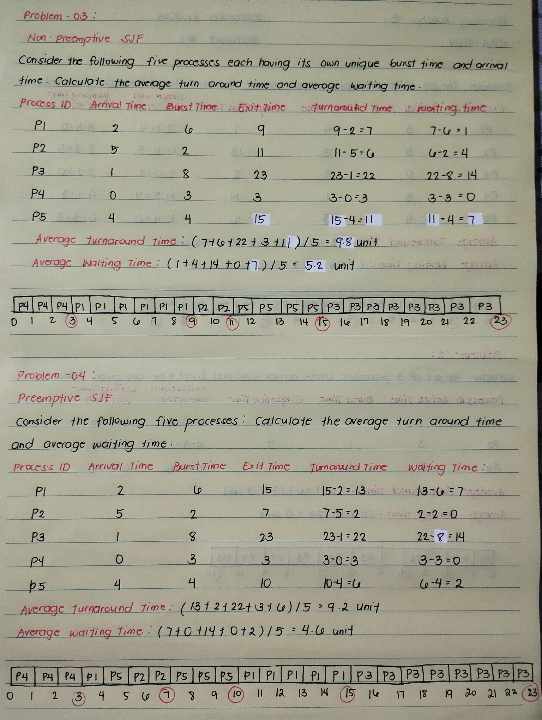 Problem - 03 :
Non-Preemptive SJF
Consider the following five processes each having its own unique burst time and arrival
time. Calculate the average turn around time and average waiting time.
Process ID Arrival Time Burst Time Exit Time turnaround Time waiting time
P1 2 6 9 9-2=7 7-6=1
P2 5 2 11 11-5=6 6-2=4
P3 1 8 23 23-1=22 22-8=14
P4 0 3 3 3-0=3 3-3=0
P5 4 4 15 15-4=11 11-4=7
Average turnaround Time : (7+6+22+3+11)/5 = 9.8 unit
Average Waiting Time : (1+4+14+0+7)/5 = 5.2 unit
P4 P4 P4 P1 P1 P1 P1 P1 P1 P2 P2 P5 P5 P5 P5 P3 P3 P3 P3 P3 P3 P3 P3
0 1 2 3 4 5 6 7 8 9 10 11 12 13 14 15 16 17 18 19 20 21 22 23
Problem -04 :
Preemptive SJF
Consider the following five processes : Calculate the average turn around time
and average waiting time.
Process ID Arrival Time Burst Time Exit Time Turnaround Time Waiting Time :
P1 2 6 15 15-2=13 13-6=7
P2 5 2 7 7-5=2 2-2=0
P3 1 8 23 23-1=22 22-8=14
P4 0 3 3 3-0=3 3-3=0
P5 4 4 10 10-4=6 6-4=2
Average turnaround Time : (13+2+22+3+6)/5 = 9.2 unit
Average waiting Time : (7+0+14+0+2)/5 = 4.6 unit
P4 P4 P4 P1 P5 P2 P2 P5 P5 P5 P1 P1 P1 P1 P1 P3 P3 P3 P3 P3 P3 P3 P3
0 1 2 3 4 5 6 7 8 9 10 11 12 13 14 15 16 17 18 19 20 21 22 23